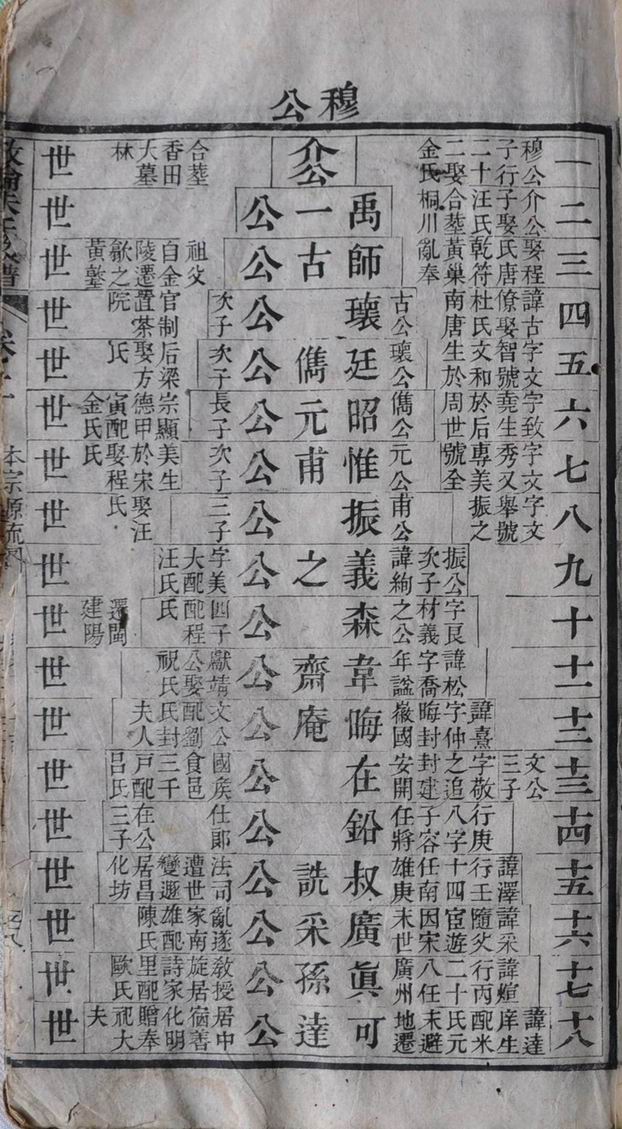 穆公
一二三四五六七八九十十一十二十三十四十五十六十七十八
穆公介公娶程諱古字文字致字文字文
子行子娶氏唐僚娶智號堯生秀又舉號
二十汪氏乾符杜氏文和於后專美振之
二娶合塟黃巢南唐生於周世號全
金氏桐川亂奉
古公瓌公儁公元公甫公
振公字良諱松諱熹
次子材義字喬字仲字敬行庚
諱絢之公年謚晦封之追八字
徽國封建子容
安開任將
文公
三子
諱澤諱采諱煊諱達
行壬隨父行丙庠生
十四宦遊二十配米
任南因宋八任氏元
雄庚末世廣州末避
地遷
介公
禹師瓌廷昭惟振義森韋晦在鉛叔廣眞可
一古儁元甫之齋庵詵采孫達
公公公公公公公公公公公公公公公公公
次子次子長子次子三子
字美四子獻靖文公國族仕郎法司亂遂教授居中
大配配程公娶配劉食邑遭世家南旋居宿善
汪氏氏祝氏氏封三千在公變遯雄配詩家化明
夫人戶配三子居昌陳氏里配贈奉
呂氏化坊歐氏祝大
夫
合塟祖父
香田自金官制后梁宗顯美生
大墓陵遷置茶娶方德甲於宋娶汪
林歙之院氏寅配娶程氏
黃墩金氏氏
遷閩
建陽
世世世世世世世世世世世世世世世世世世
本宗源流